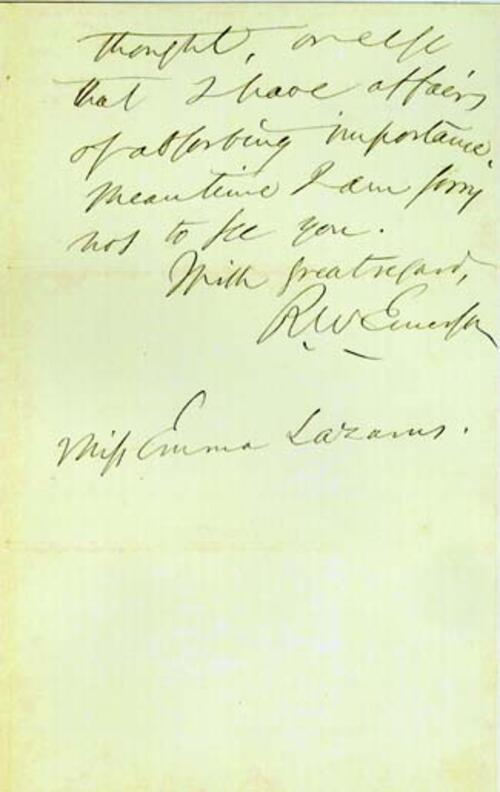 thought, or else
that I have affairs
of absorbing importance.
Meantime I am sorry
not to see you.
With great regard,
R. W. Emerson
Miss Emma Lazarus.